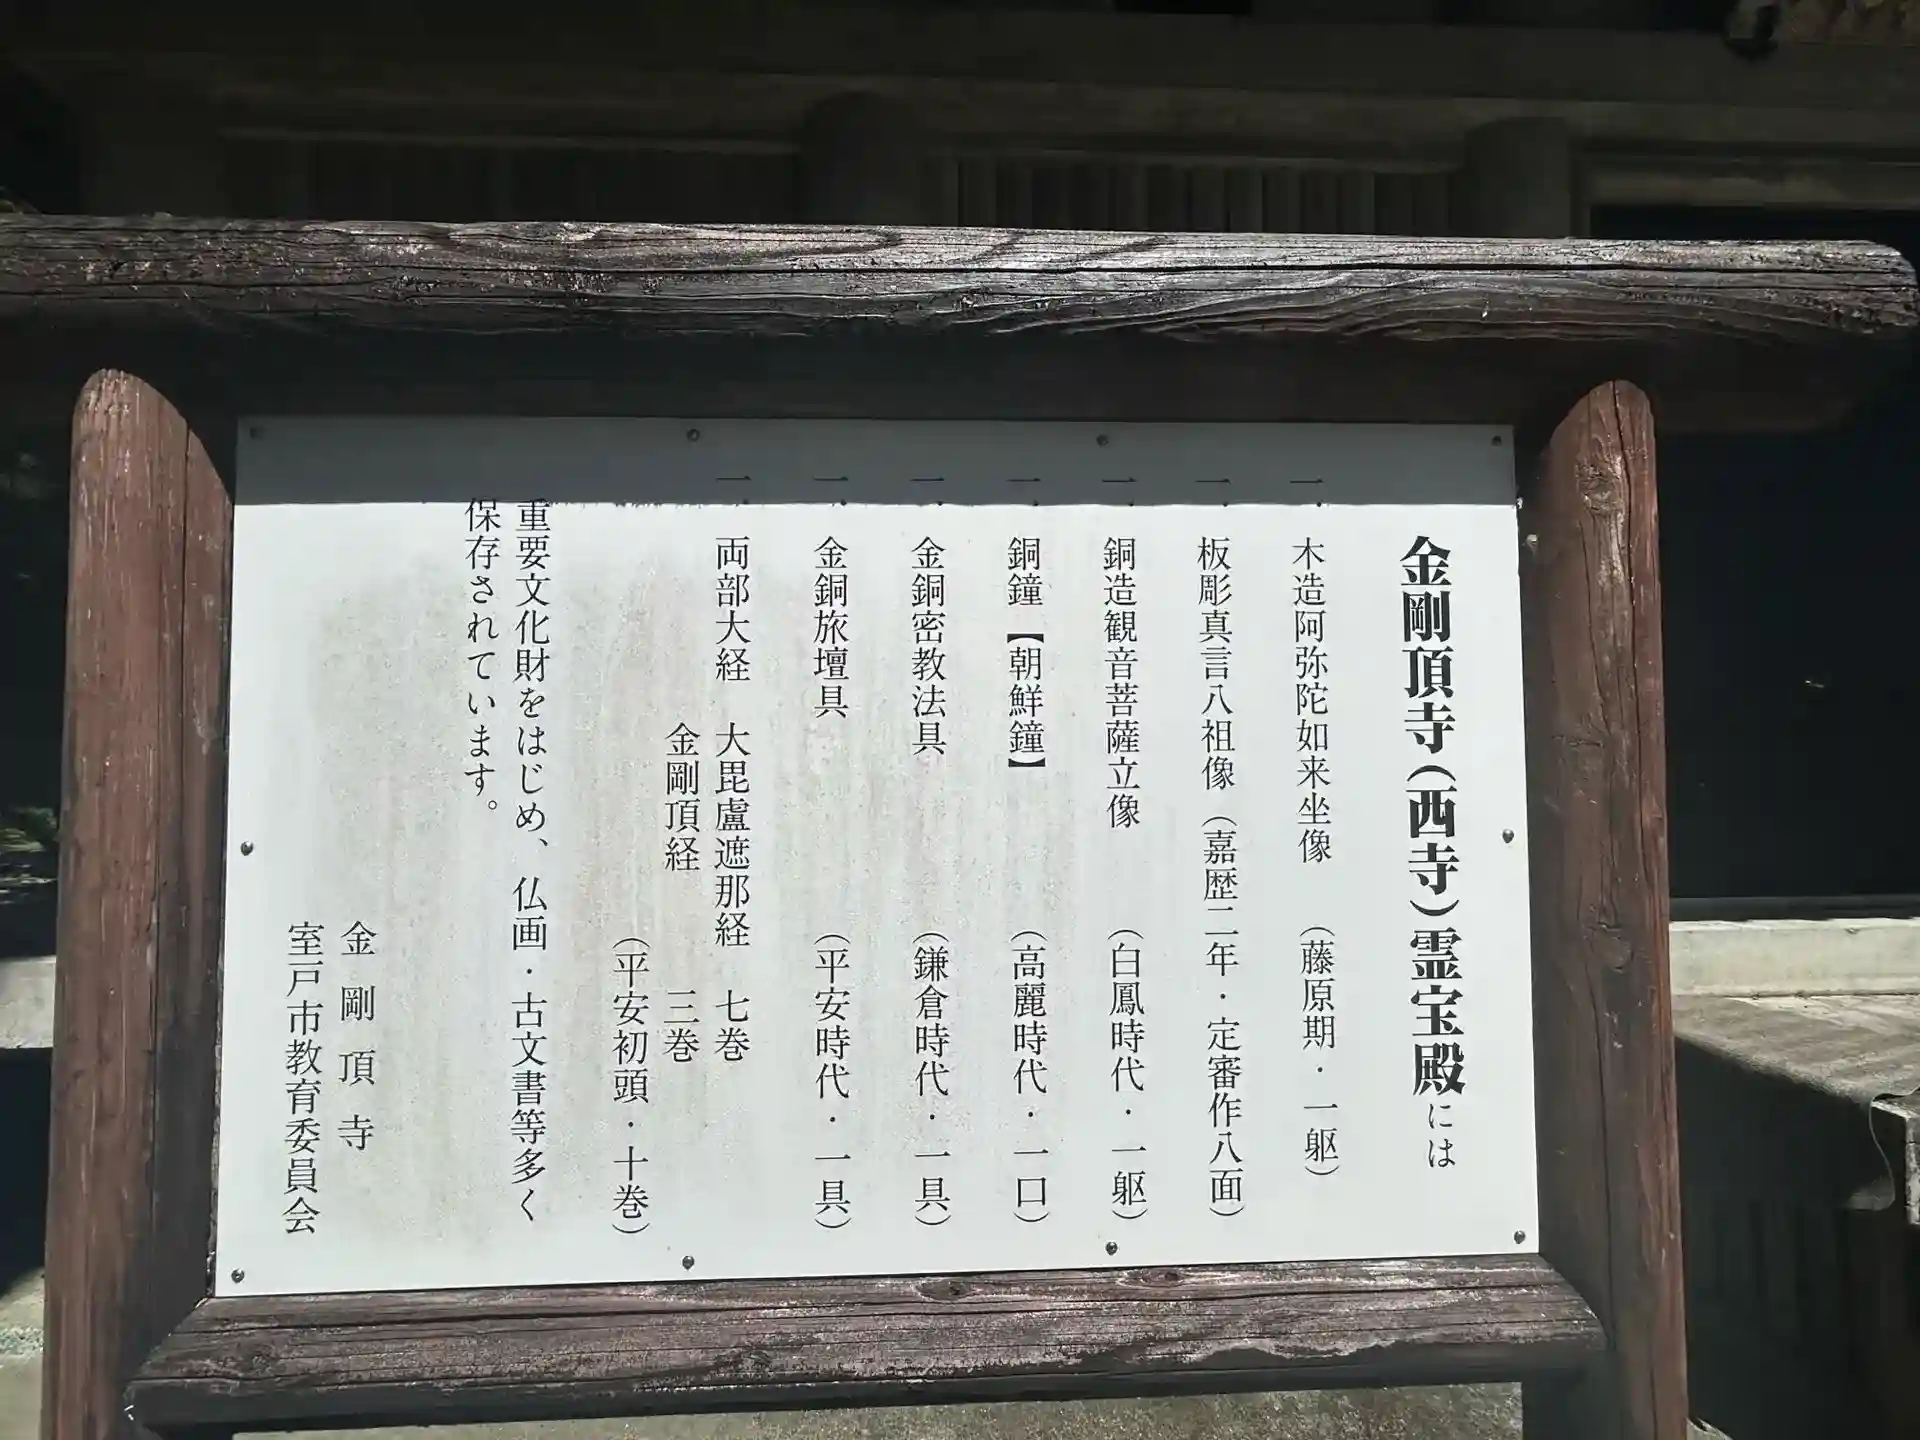 金剛頂寺(西寺)霊宝殿には
一、木造阿弥陀如来坐像 (藤原期・一躯)
一、板彫真言八祖像 (嘉歴二年・定審作八面)
一、銅造観音菩薩立像 (白鳳時代・一躯)
一、銅鐘【朝鮮鐘】 (高麗時代・一口)
一、金銅密教法具 (鎌倉時代・一具)
一、金銅旅壇具 (平安時代・一具)
一、両部大経 大毘盧遮那経 七巻
金剛頂経 三巻
(平安初頭・十巻)
重要文化財をはじめ、仏画・古文書等多く
保存されています。
金剛頂寺
室戸市教育委員会